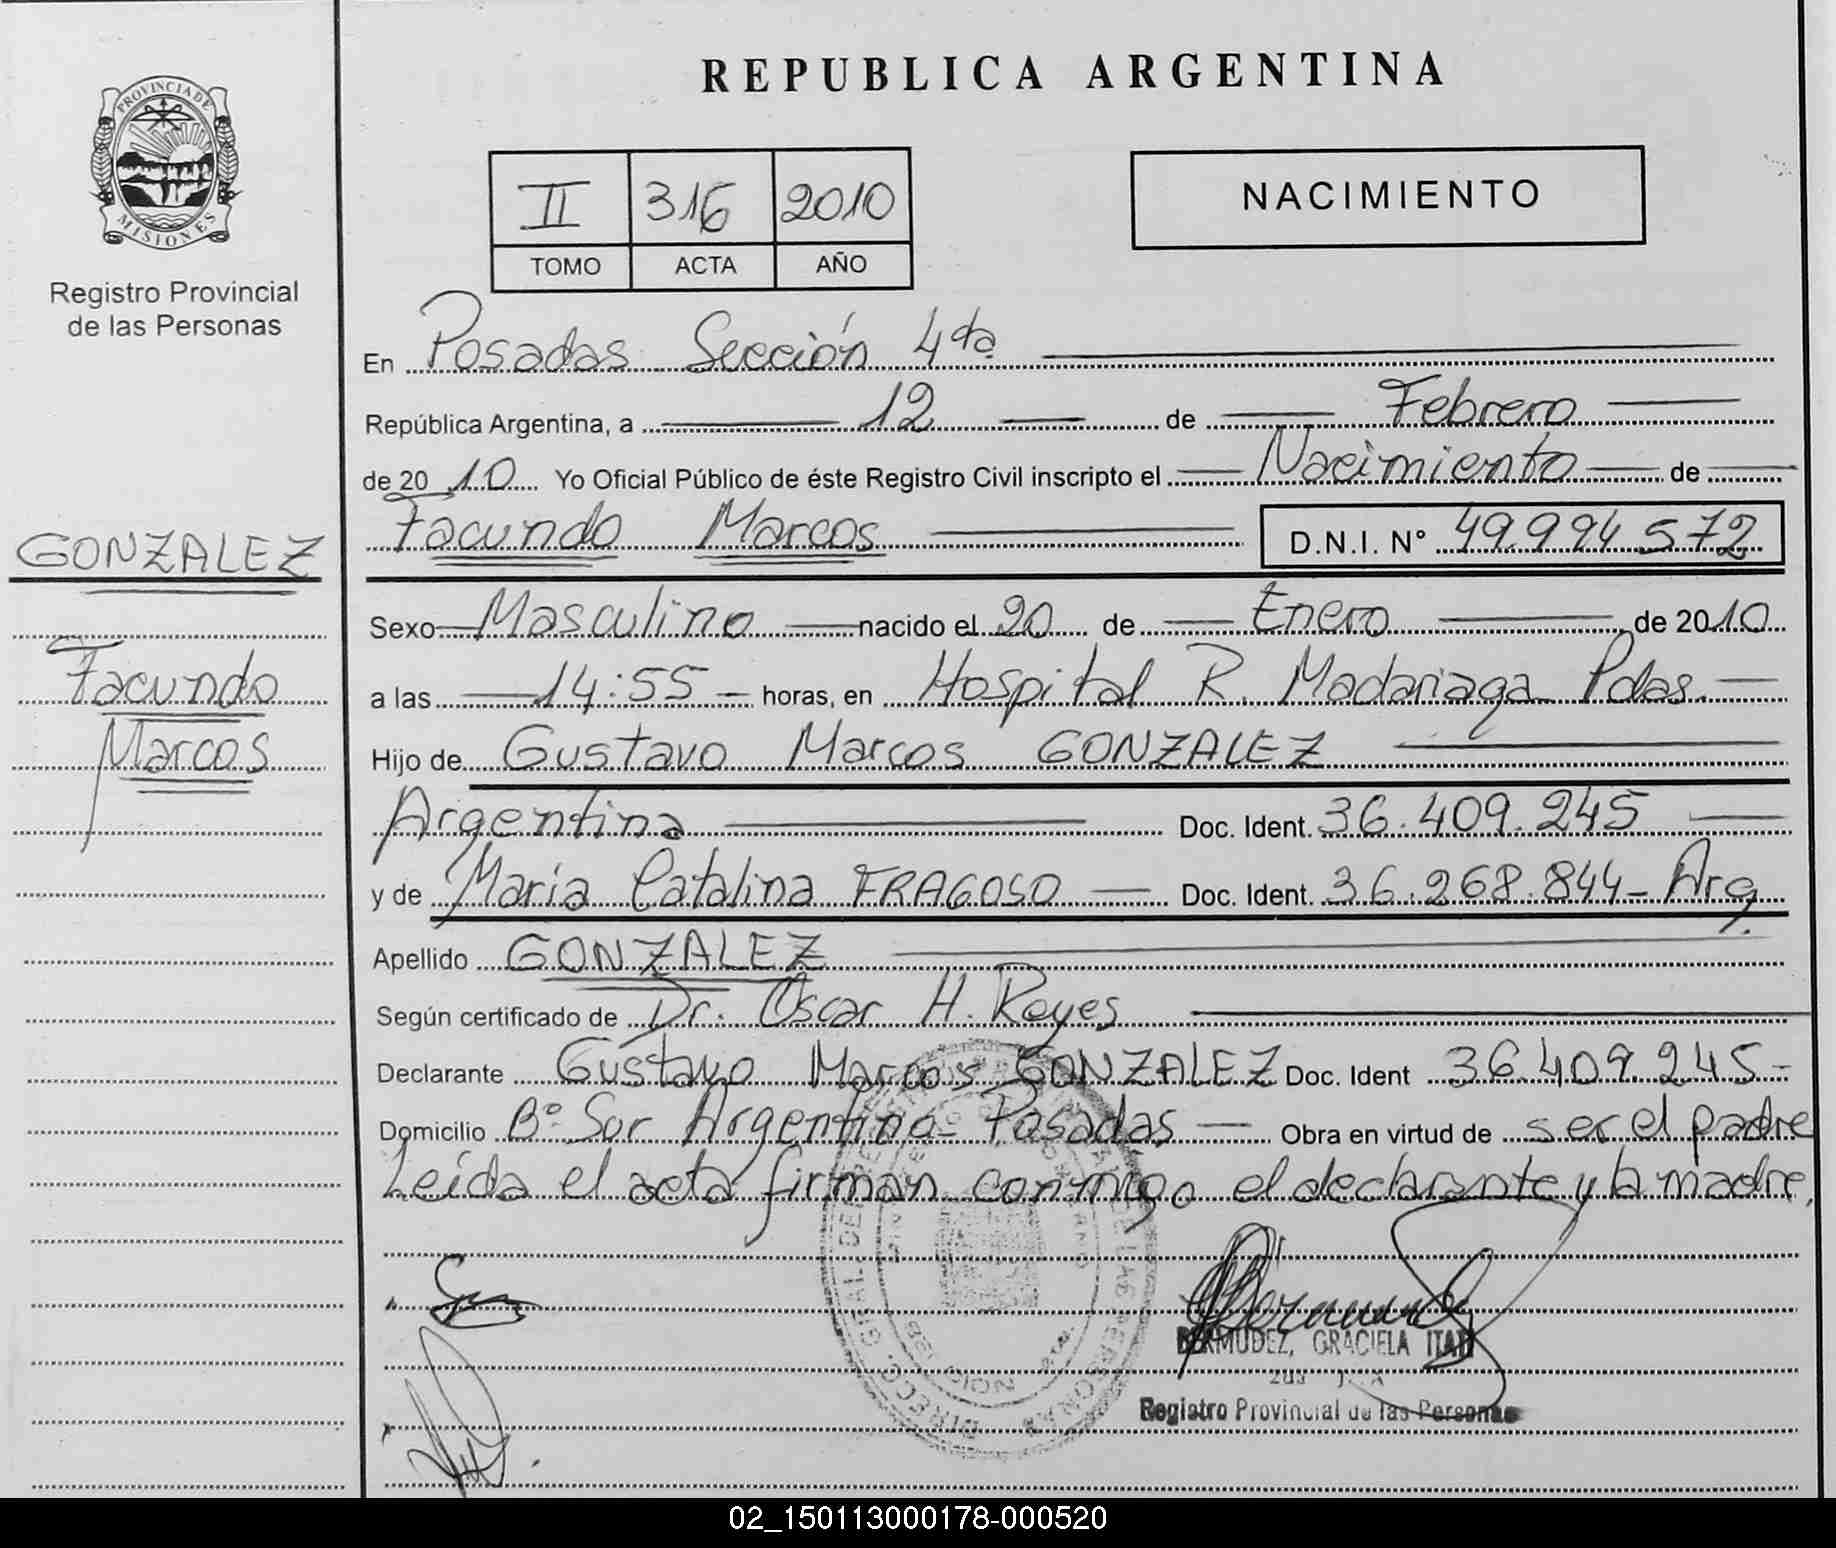 REPUBLICA ARGENTINA
PROVINCIA DE
MISIONES
Registro Provincial
de las Personas
II 316 2010
TOMO ACTA AÑO
NACIMIENTO
En Posadas Sección 4da
República Argentina, a 12 de Febrero
de 2010 Yo Oficial Público de éste Registro Civil inscripto el Nacimiento de
Facundo Marcos D.N.I. Nº 49.994.572
GONZALEZ
Facundo
Marcos
Sexo Masculino nacido el 20 de Enero de 2010
a las 14:55 horas, en Hospital R. Madariaga Pdas.
Hijo de Gustavo Marcos GONZALEZ
Argentina Doc. Ident. 36.409.245
y de María Catalina FRAGOSO Doc. Ident. 36.268.844 - Arg.
Apellido GONZALEZ
Según certificado de Dr. Oscar H. Reyes
Declarante Gustavo Marcos GONZALEZ Doc. Ident 36.409.245-
Domicilio Bº Sur Argentino - Posadas Obra en virtud de ser el padre
Leída el acta firman conmigo el declarante y la madre,
BERMUDEZ, GRACIELA ITATI
Registro Provincial de las Personas
02_150113000178-000520